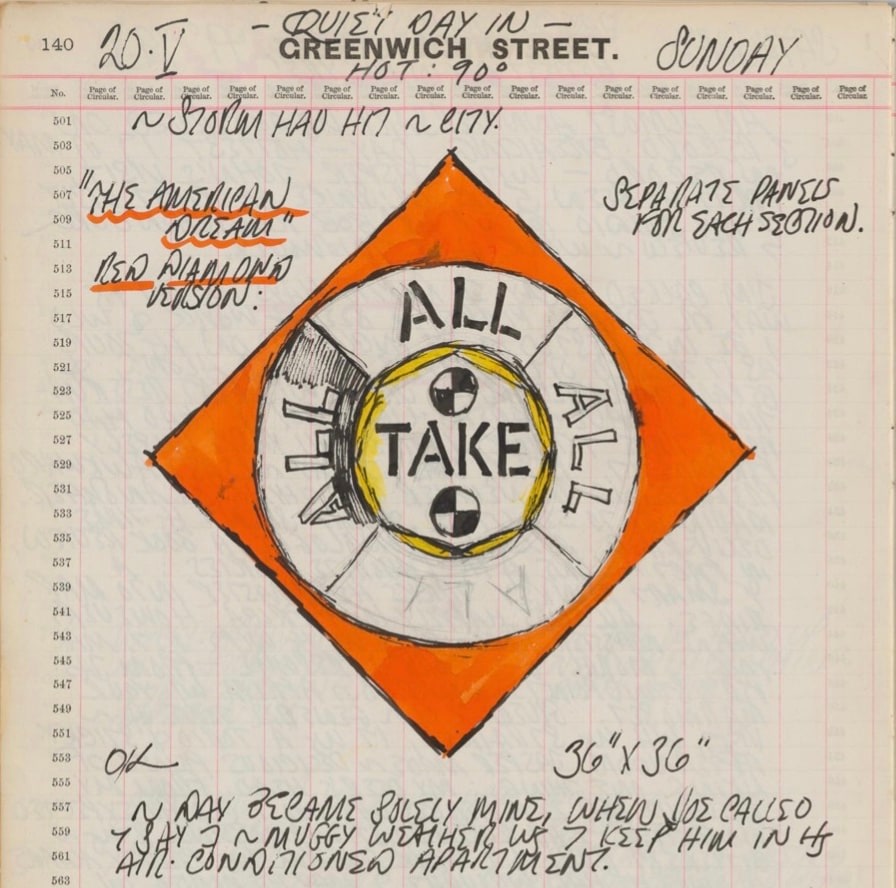 - QUIET DAY IN -
140 20·V GREENWICH STREET. SUNDAY
HOT: 90°
No. Page of Circular. Page of Circular. Page of Circular. Page of Circular. Page of Circular. Page of Circular. Page of Circular. Page of Circular. Page of Circular. Page of Circular. Page of Circular. Page of Circular. Page of Circular. Page of Circular. Page of Circular. Page of Circular. Page of Circular.
501 ~ STORM HAD HIT ~ CITY.
503
505
507 "THE AMERICAN SEPARATE PANELS
509 DREAM" FOR EACH SECTION.
511
513 RED DIAMOND
515 VERSION:
517 ALL
519
521
523
525 ALL ALL
527 TAKE
529
531
533
535
537
539 ALL
541
543
545
547
549
551
553 OK 36" X 36"
555
557 ~ DAY BECAME SOLELY MINE, WHEN JOE CALLED
559 7 SAY ~ MUGGY WEATHER WS 7 KEEP HIM IN HS
561 AIR-CONDITIONED APARTMENT.
563